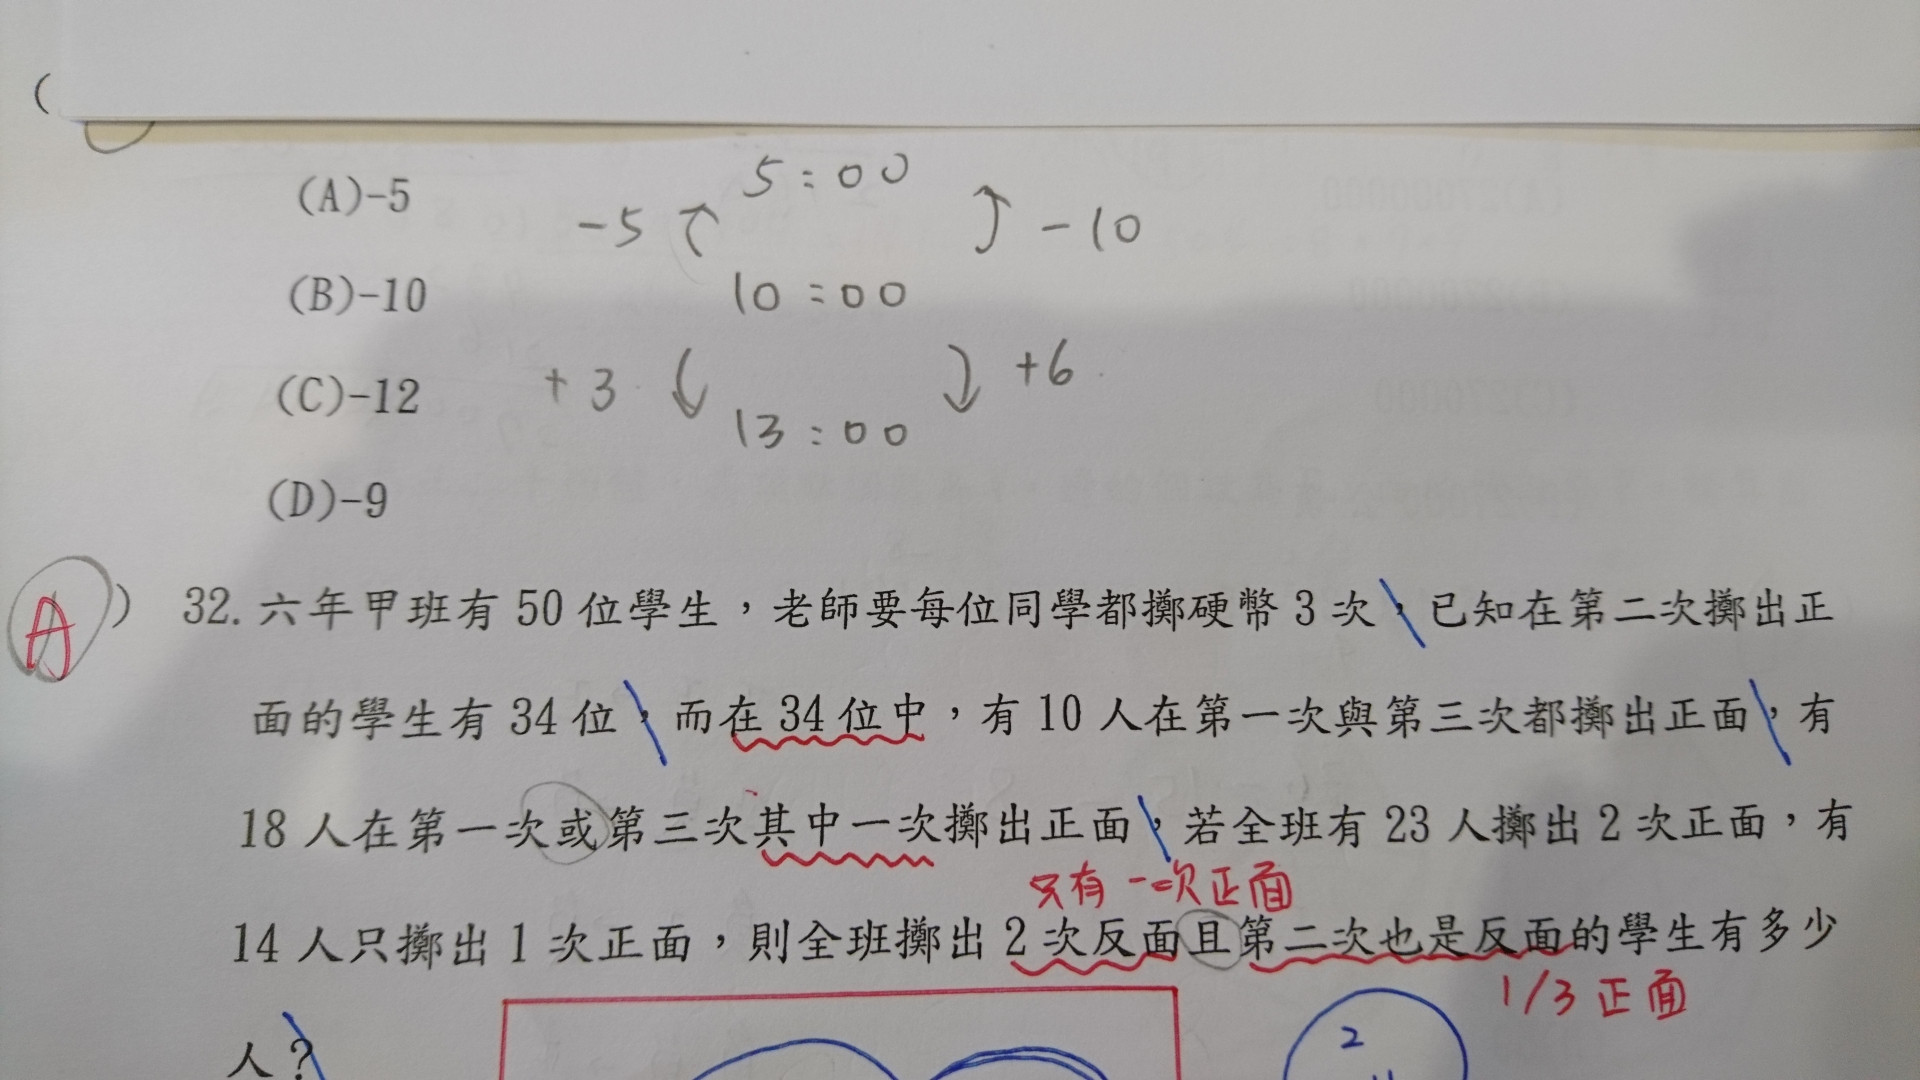 (
(A)-5
5:00
-5
-10
(B)-10
10:00
(C)-12
+3
+6
13:00
(D)-9
A ) 32. 六年甲班有 50 位學生，老師要每位同學都擲硬幣 3 次，已知在第二次擲出正
面的學生有 34 位，而在 34 位中，有 10 人在第一次與第三次都擲出正面，有
18 人在第一次或第三次其中一次擲出正面，若全班有 23 人擲出 2 次正面，有
只有一次正面
14 人只擲出 1 次正面，則全班擲出 2 次反面且第二次也是反面的學生有多少
1/3 正面
人？
2